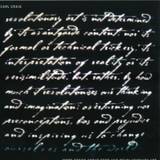 CARL CRAIG
revolutionary art is not determined
by its avantgarde content nor its
formal or technical trickery, its
interpretation of reality or its
verisimilitude but rather, by how
much it revolutionizes our thinking
and imagination; overturning our
preconceptions, bias and prejudice
and inspiring us to change
ourselves and the world